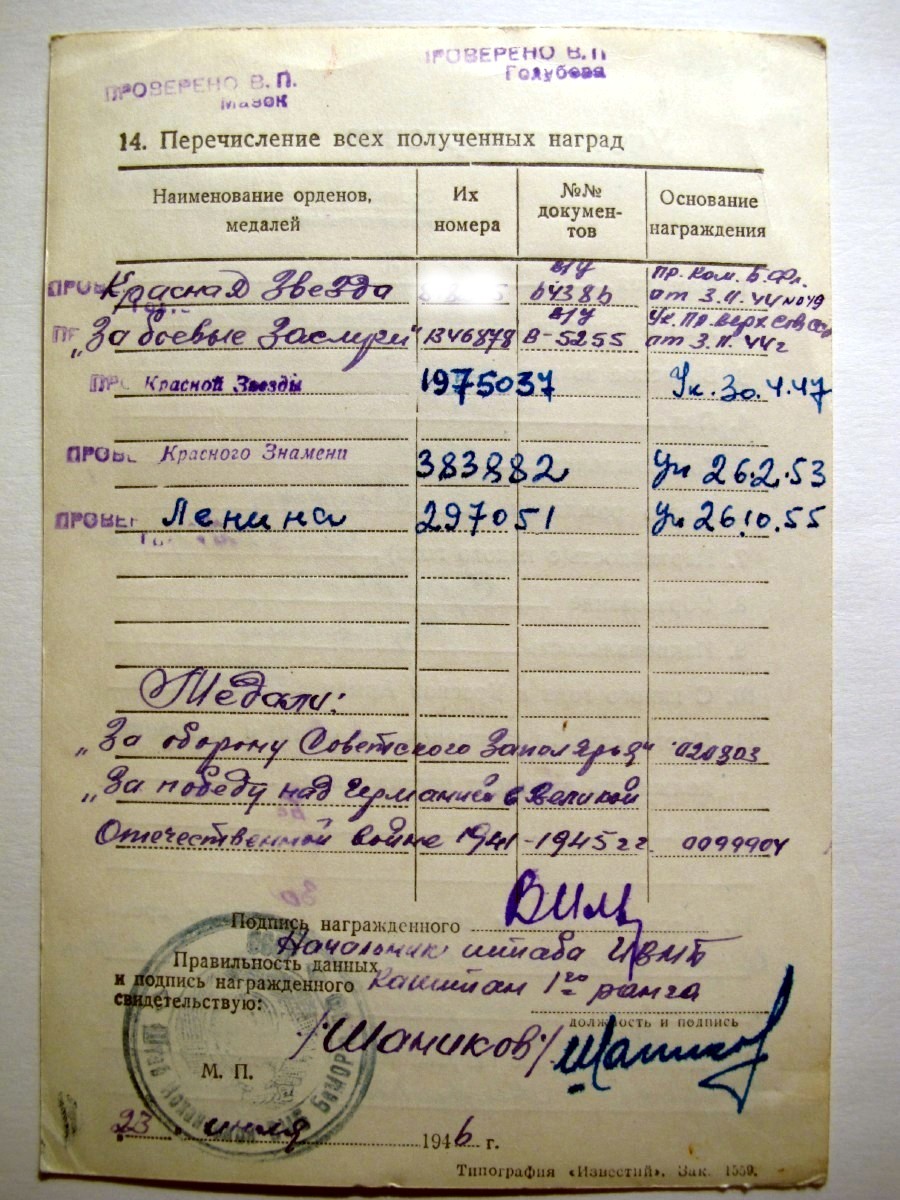 ПРОВЕРЕНО В. П.
Мазок
ПРОВЕРЕНО В. П
Голубева
14. Перечисление всех полученных наград
Наименование орденов, медалей
Их номера
№№ документов
Основание награждения
ПРОВЕ Красная Звезда ВПУ 64386 Пр. Ком. Б. Фл. от 3.11.44 №019
„За боевые Заслуги" 1346878 ВПУ В-5255 Ук. Пр. Верх от 3.11.44г
ПРО Красной Звезды 1975037 Ук. 30.4.47
ПРОВЕ Красного Знамени 383882 Ук 26.2.53
ПРОВЕР Ленина 297051 Ук 26.10.55
Медали:
„За оборону Советского Заполярья" 020803
„За победу над Германией в Великой
Отечественной войне 1941-1945 гг 0099904
Подпись награжденного
Начальник штаба
Правильность данных
и подпись награжденного Капитан 1го ранга
свидетельствую:
должность и подпись
/Шаников/
М. П.
23 июля 1946 г.
Типография «Известий». Зак. 1559.